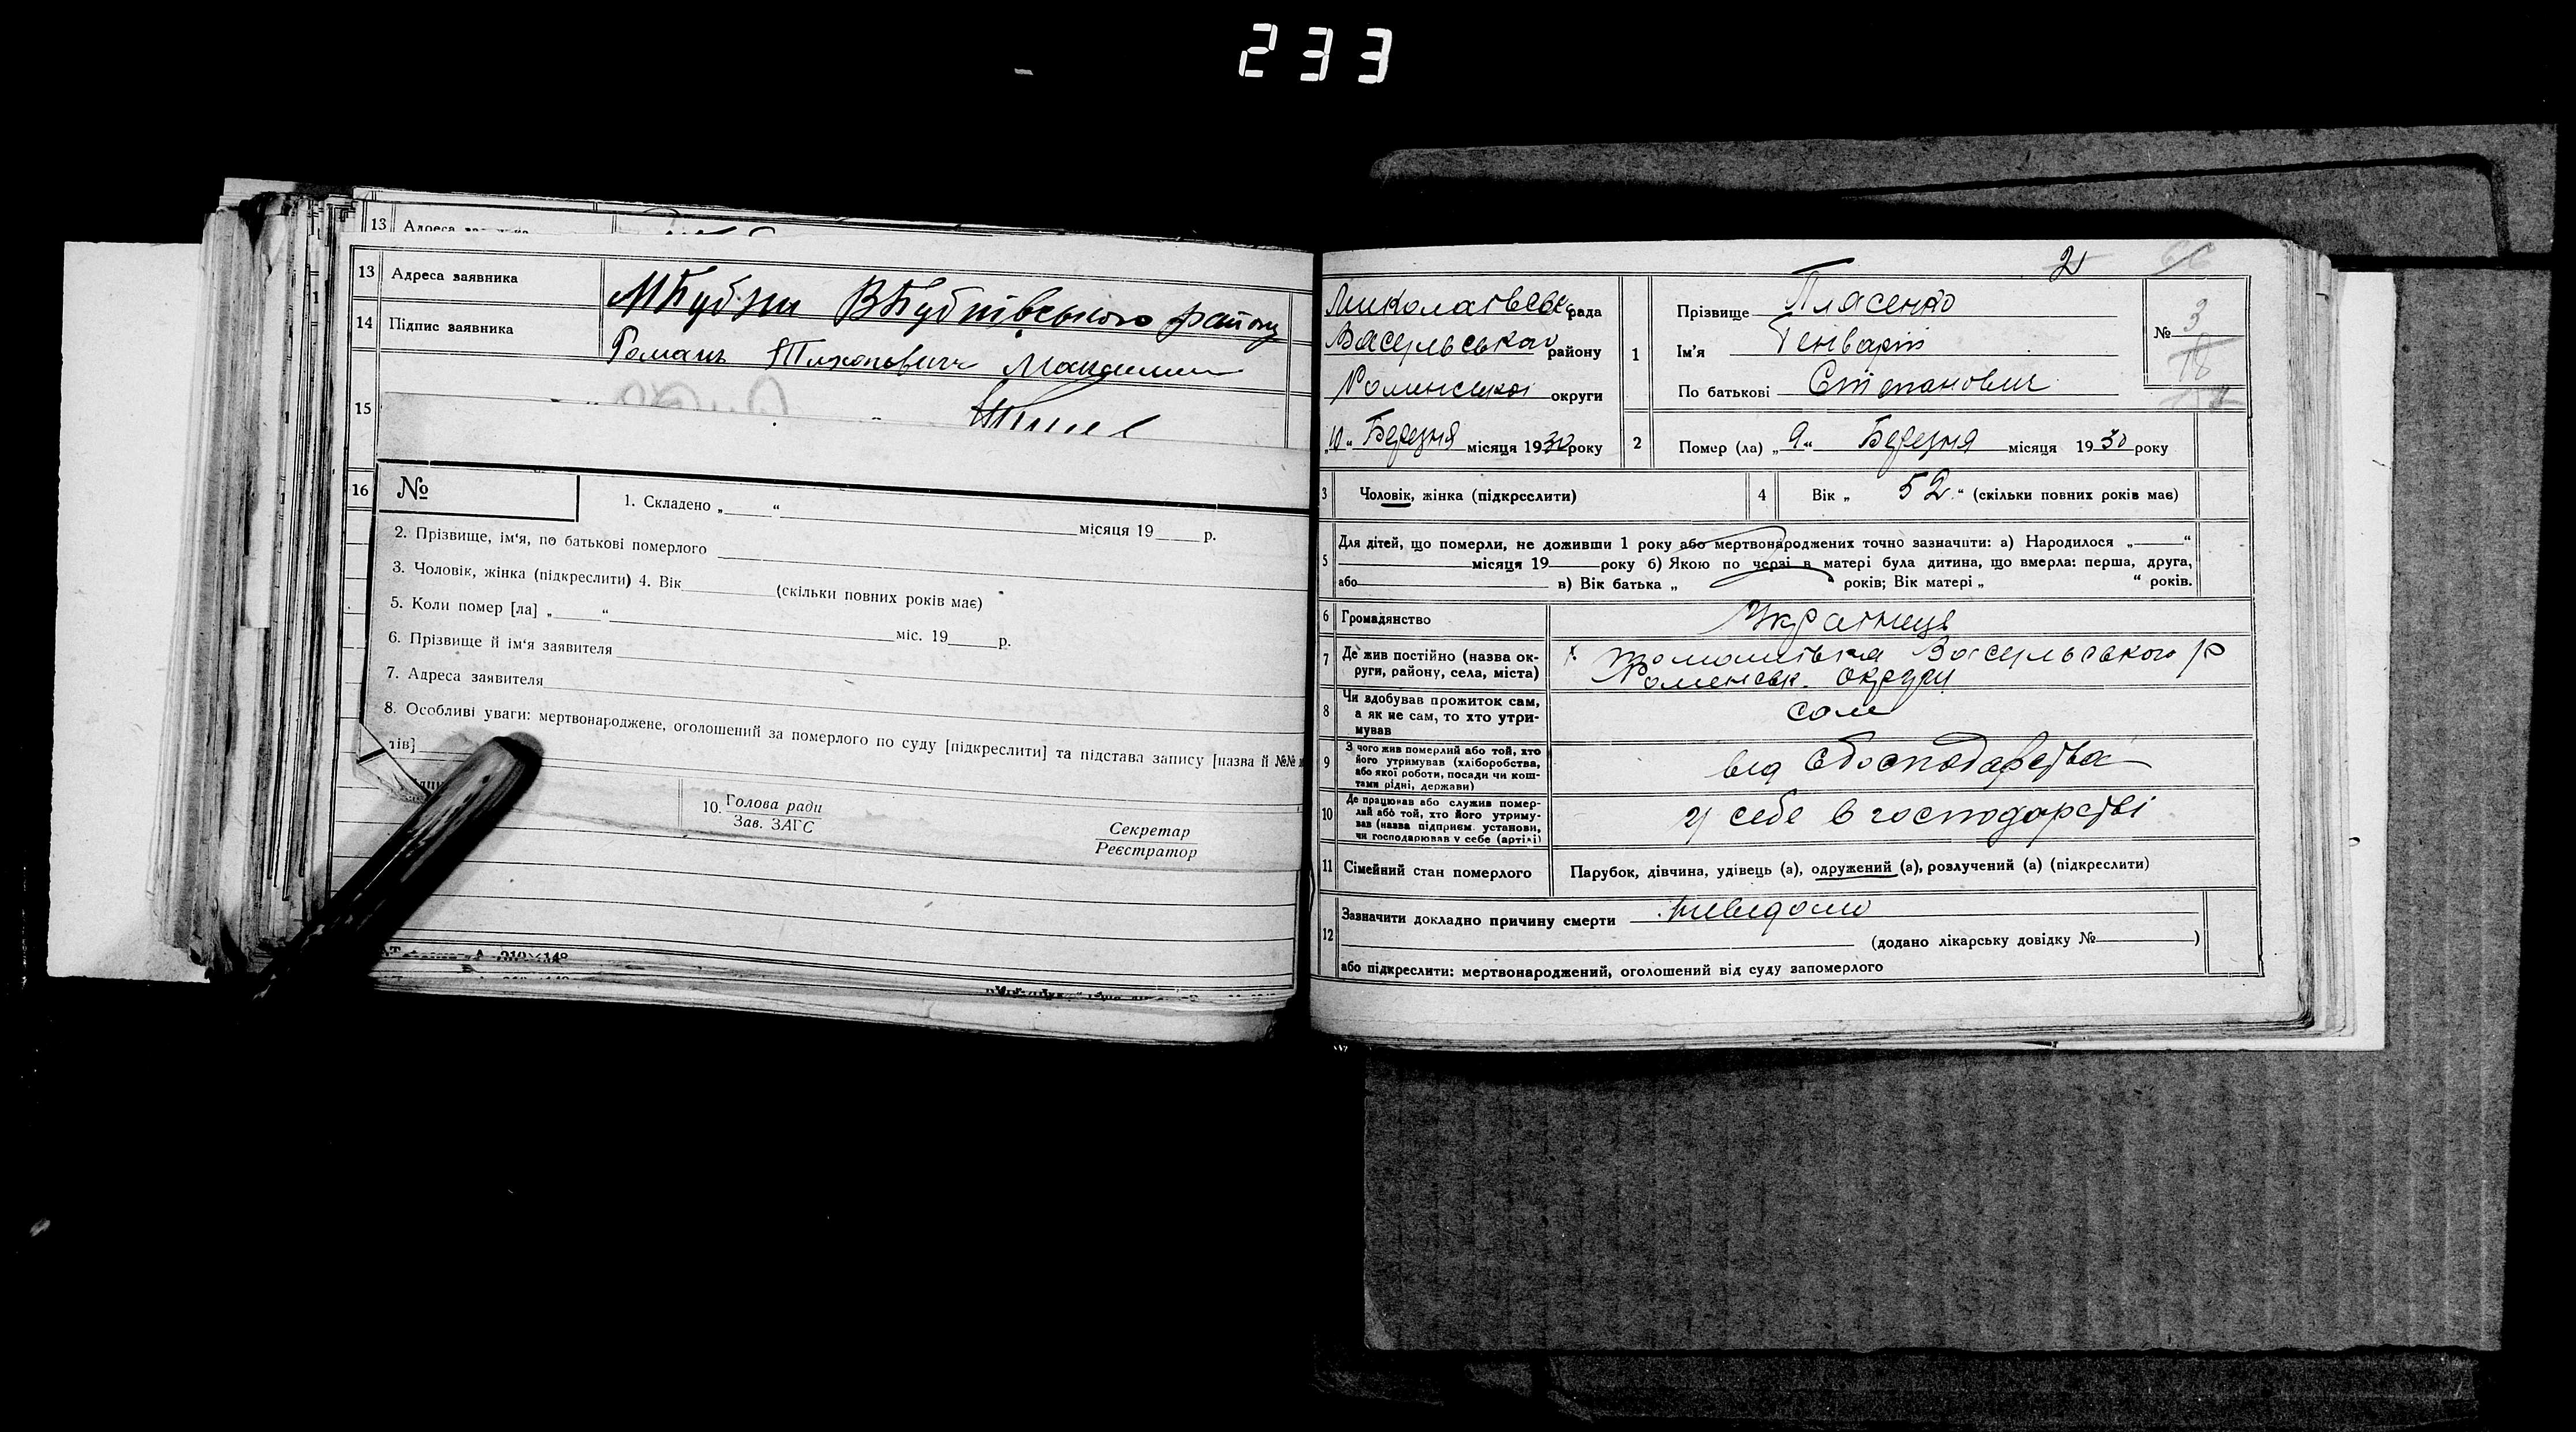 233
13 Адреса
13 Адреса заявника МБубни ВБубнівського району
14 Підпис заявника Роман Тихонович
15
16 №
1. Складено „ “ місяця 19 р.
2. Прізвище, ім‘я, по батькові померлого
3. Чоловік, жінка (підкреслити) 4. Вік (скільки повних років має)
5. Коли помер [ла] „ “ міс. 19 р.
6. Прізвище й ім‘я заявителя
7. Адреса заявителя
8. Особливі уваги: мертвонароджене, оголошений за померлого по суду [підкреслити] та підстава запису [назва й №№
лів]
10. Голова ради
Зав. ЗАГС
Секретар
Реєстратор
2
Миколаївськ рада
Засульського району
Роменської округи
„10“ Березня місяця 1930 року
1 Прізвище Пласенко
Ім'я Генварій
По батькові Степанович
№ 3
18
2 Помер (ла) „9“ Березня місяця 1930 року
3 Чоловік, жінка (підкреслити) 4 Вік „ 52 “ (скільки повних років має)
5 Для дітей, що померли, не доживши 1 року або мертвонароджених точно зазначити: а) Народилося „ “
місяця 19 року б) Якою по черзі в матері була дитина, що вмерла: перша, друга,
або в) Вік батька „ “ років; Вік матері „ “ років.
6 Громадянство Українець
7 Де жив постійно (назва ок-
руги, району, села, міста) х. Томашівка Засульського р
Роменськ. округи
8 Чи здобував прожиток сам,
а як не сам, то хто утри-
мував сам
9 З чого жив померлий або той, хто
його утримував (хліборобства,
або якої роботи, посади чи кош-
тами рідні, держави) від господарства
10 Де працював або служив помер-
лий або той, хто його утриму-
вав (назва підприєм. установи,
чи господарював у себе (артілі) у себе в господарстві
11 Сімейний стан померлого Парубок, дівчина, удівець (а), одружений (а), розлучений (а) (підкреслити)
12 Зазначити докладно причину смерти невідомо
(додано лікарську довідку № )
або підкреслити: мертвонароджений, оголошений від суду запомерлого